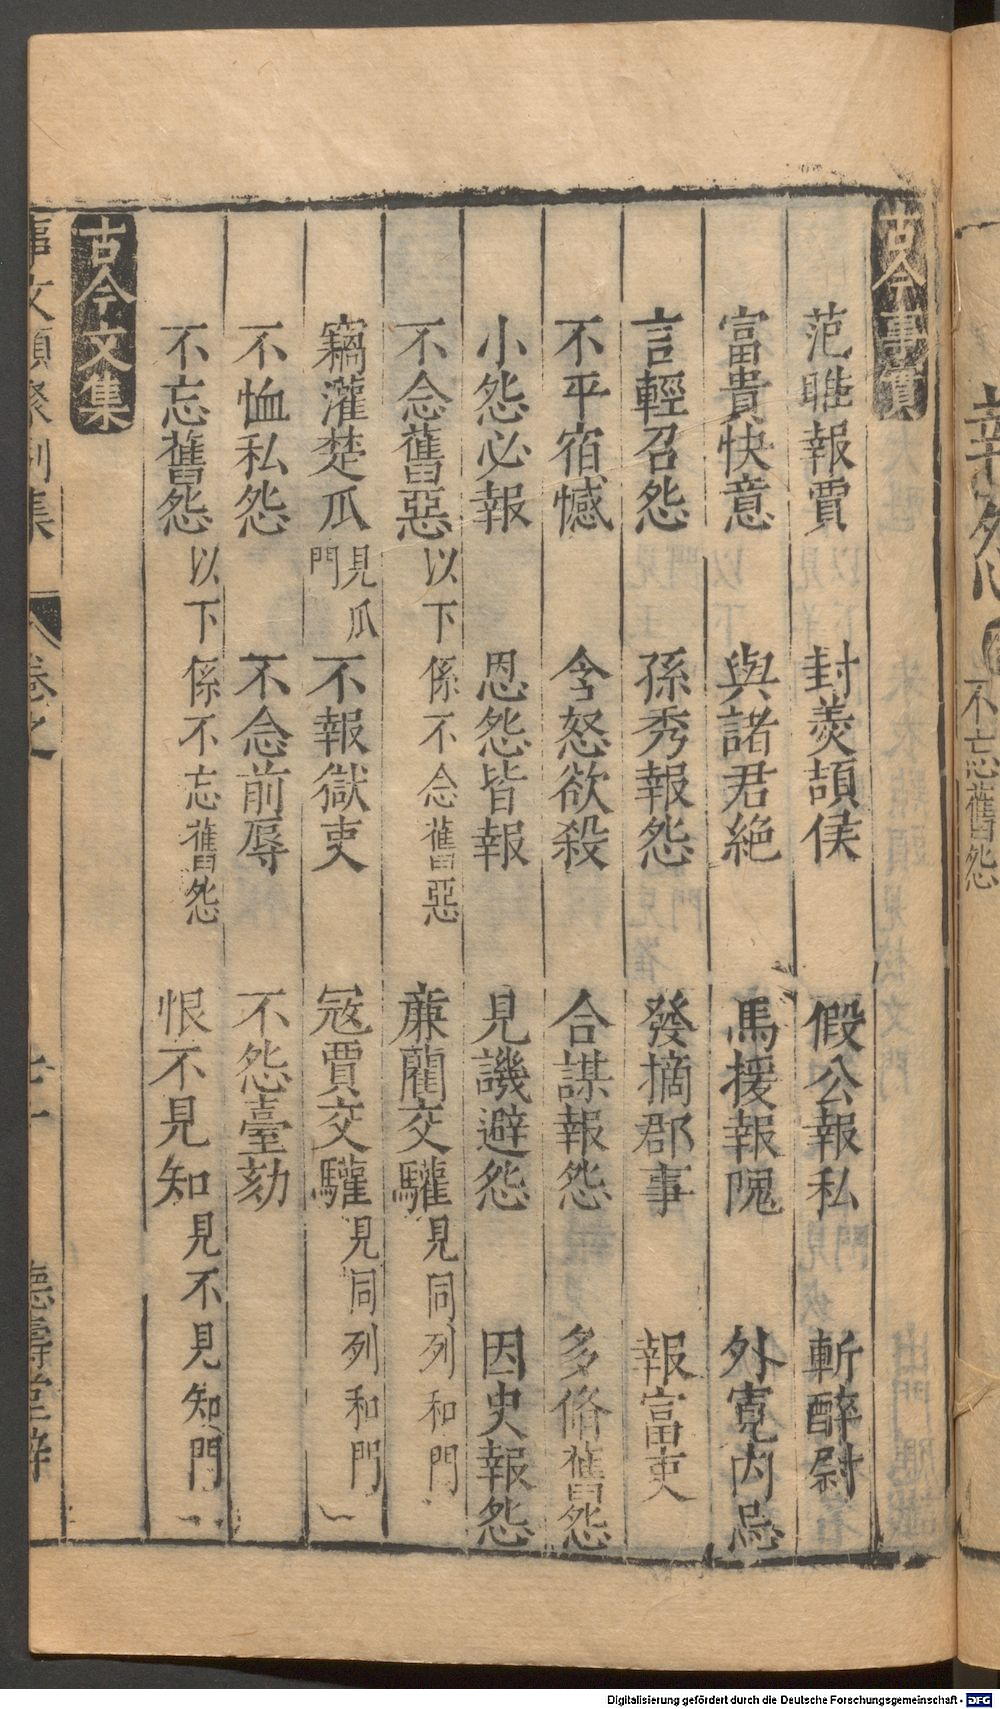 辛怨 不忘舊怨
古今事實
范睢報賈 封羮頡侯 假公報私 斬醉尉
富貴快意 與諸君絶 馬援報隗 外寛内忌
言輕召怨 孫秀報怨 發摘郡事 報富吏
不平宿憾 含怒欲殺 合謀報怨 多脩舊怨
小怨必報 恩怨皆報 見譏避怨 因史報怨
不念舊惡 以下係不念舊惡 亷藺交驩 見同列和門
竊灌楚瓜 見瓜門 不報獄吏 冦賈交驩 見同列和門
不恤私怨 不念前辱 不怨臺劾
不忘舊怨 以下係不忘舊怨 恨不見知 見不見知門
古今文集
事文類聚別集 卷之 德壽堂梓
Digitalisierung gefördert durch die Deutsche Forschungsgemeinschaft - DFG